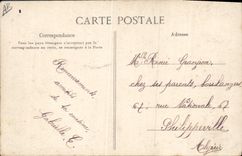 CARTE POSTALE
Correspondance
Adresse
Tous les pays étrangers n'acceptent pas la
correspondance au recto, se renseigner à la Poste
Remerciements
amitiés
de la
Gabrielle
chez ses parents, boulangers
67, rue Nationale, 67
Philippeville
Algérie